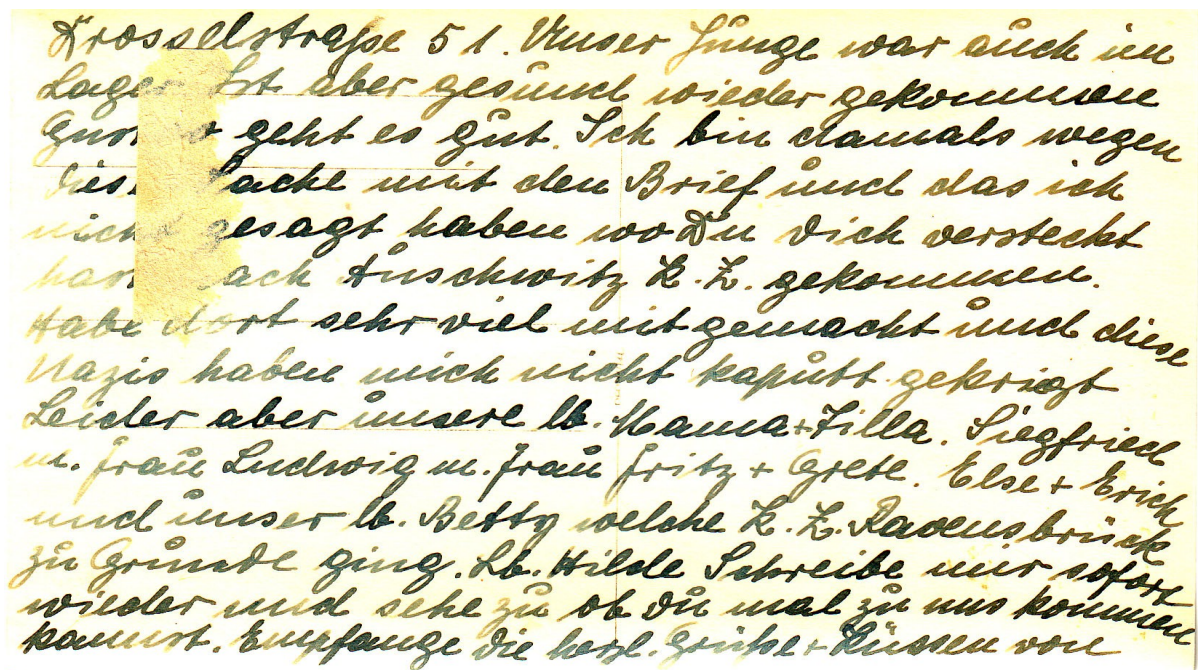 Drosselstraße 51. Unser Junge war auch im
Lager Ist aber gesund wieder gekommen
geht es gut. Ich bin damals wegen
mit den Brief und das ich
gesagt haben wo Du Dich versteckt
Auschwitz K. Z. gekommen.
Habe dort sehr viel mitgemacht und diese
Nazis haben mich nicht kaputt gekrigt
Leider aber unsere lb. Mama + Zilla. Siegfried
m. Frau Ludwig m. Frau Fritz + Grete. Else + Erich
und unser lb. Betty welche K. Z. Ravensbrück
zu Grunde ging. Lb. Hilde Schreibe mir sofort
wieder und sehe zu ob Du mal zu uns kommen
kannst. Empfange die herzl. Grüße + Küssen von